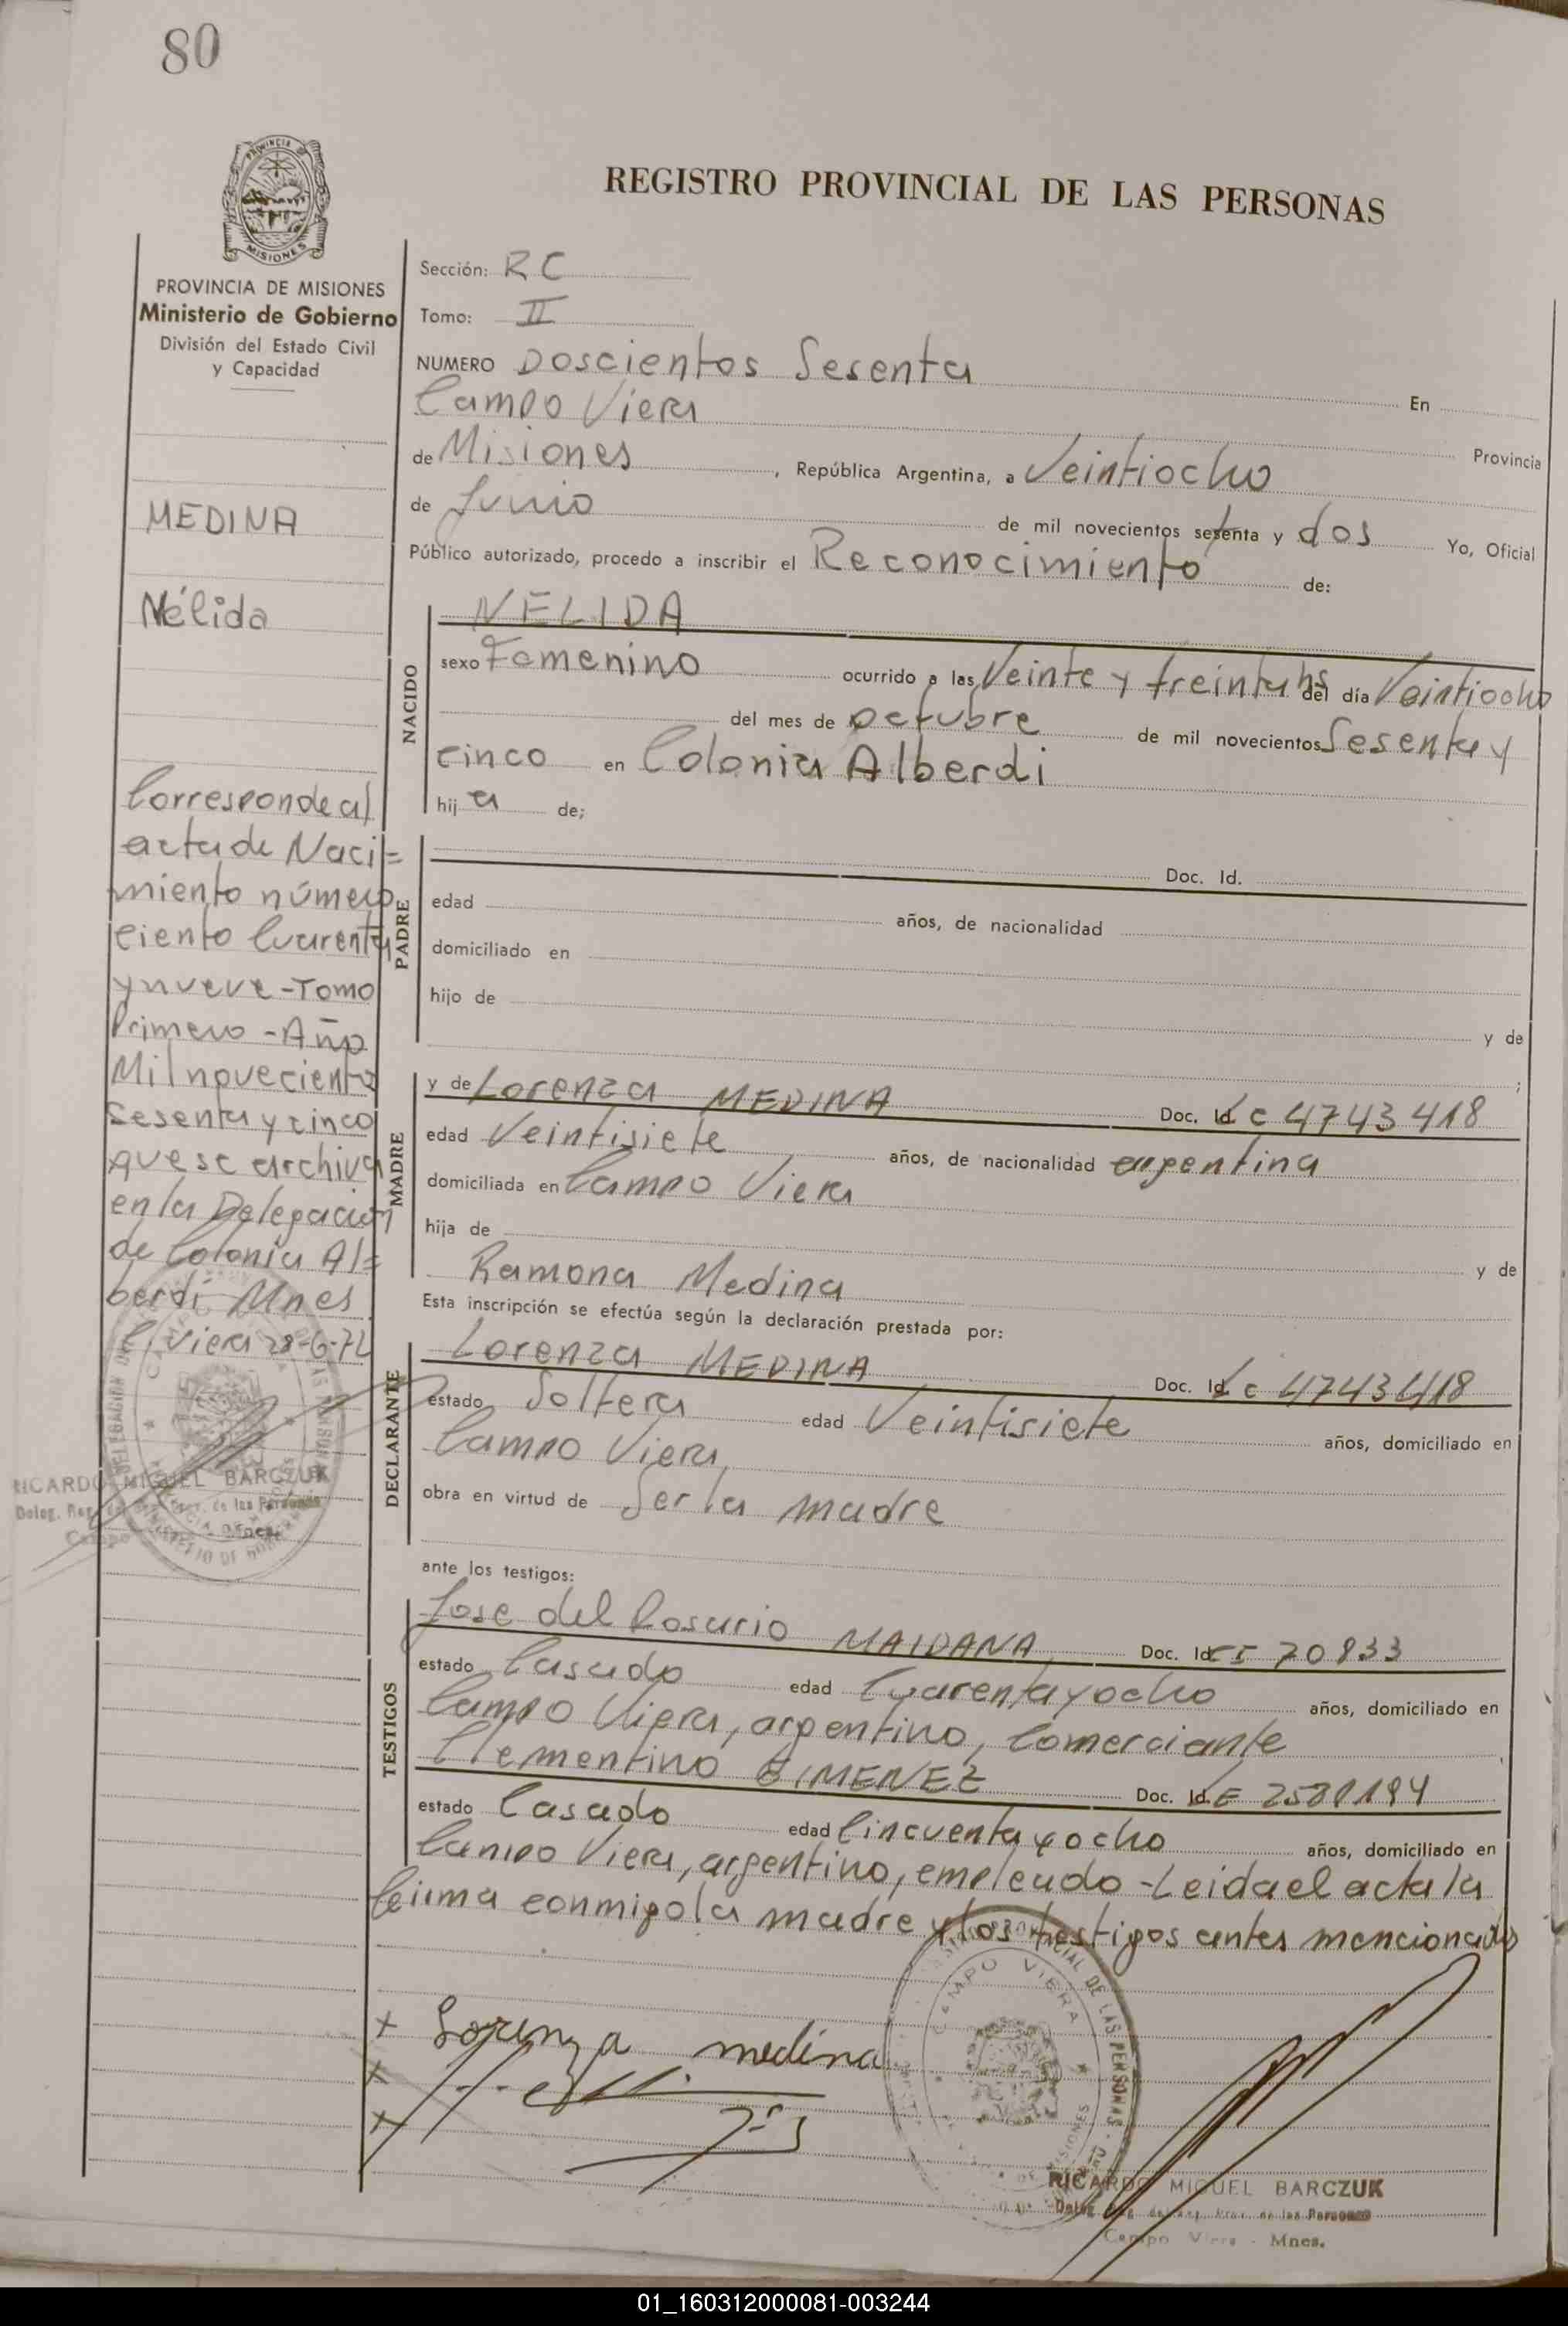 80
PROVINCIA
MISIONES
REGISTRO PROVINCIAL DE LAS PERSONAS
PROVINCIA DE MISIONES
Ministerio de Gobierno
División del Estado Civil
y Capacidad
MEDINA
Nélida
Corresponde al
acta de Naci=
miento número
ciento cuarenta
y nueve - Tomo
Primero - Año
Mil novecientos
Sesenta y cinco
que se archiva
en la Delegación
de Colonia Al=
berdi Mnes
C. Viera 28-6-72
RICARDO MIGUEL BARCZUK
Sección: RC
Tomo: II
NUMERO Doscientos Sesenta En
Campo Viera Provincia
de Misiones, República Argentina, a Veintiocho
de Junio de mil novecientos setenta y dos Yo, Oficial
Público autorizado, procedo a inscribir el Reconocimiento de:
NACIDO
NELIDA
sexo Femenino ocurrido a las Veinte y treinta hs del día Veintiocho
del mes de octubre de mil novecientos Sesenta y
cinco en Colonia Alberdi
hija de;
PADRE
Doc. Id.
edad años, de nacionalidad
domiciliado en
hijo de
y de
;
MADRE
y de Lorenza MEDINA Doc. Id. Lc 4743418
edad Veintisiete años, de nacionalidad argentina
domiciliada en Campo Viera
hija de
y de
Ramona Medina
Esta inscripción se efectúa según la declaración prestada por:
DECLARANTE
Lorenza MEDINA Doc. Id. Lc 4743418
estado Soltera edad Veintisiete años, domiciliado en
Campo Viera
obra en virtud de Ser la madre
ante los testigos:
TESTIGOS
Jose del Rosario MAIDANA Doc. Id. CI 70833
estado Casado edad Cuarenta y ocho años, domiciliado en
Campo Viera, argentino, Comerciante
Clementino GIMENEZ Doc. Id. LE
estado Casado edad Cincuenta y ocho años, domiciliado en
Campo Viera, argentino, empleado - Leida el acta la
firma conmigo la madre y los testigos antes mencionados
+ Lorenza medina
+
+
CAMPO VIERA
RICARDO MIGUEL BARCZUK
Campo Viera - Mnes.
01_160312000081-003244